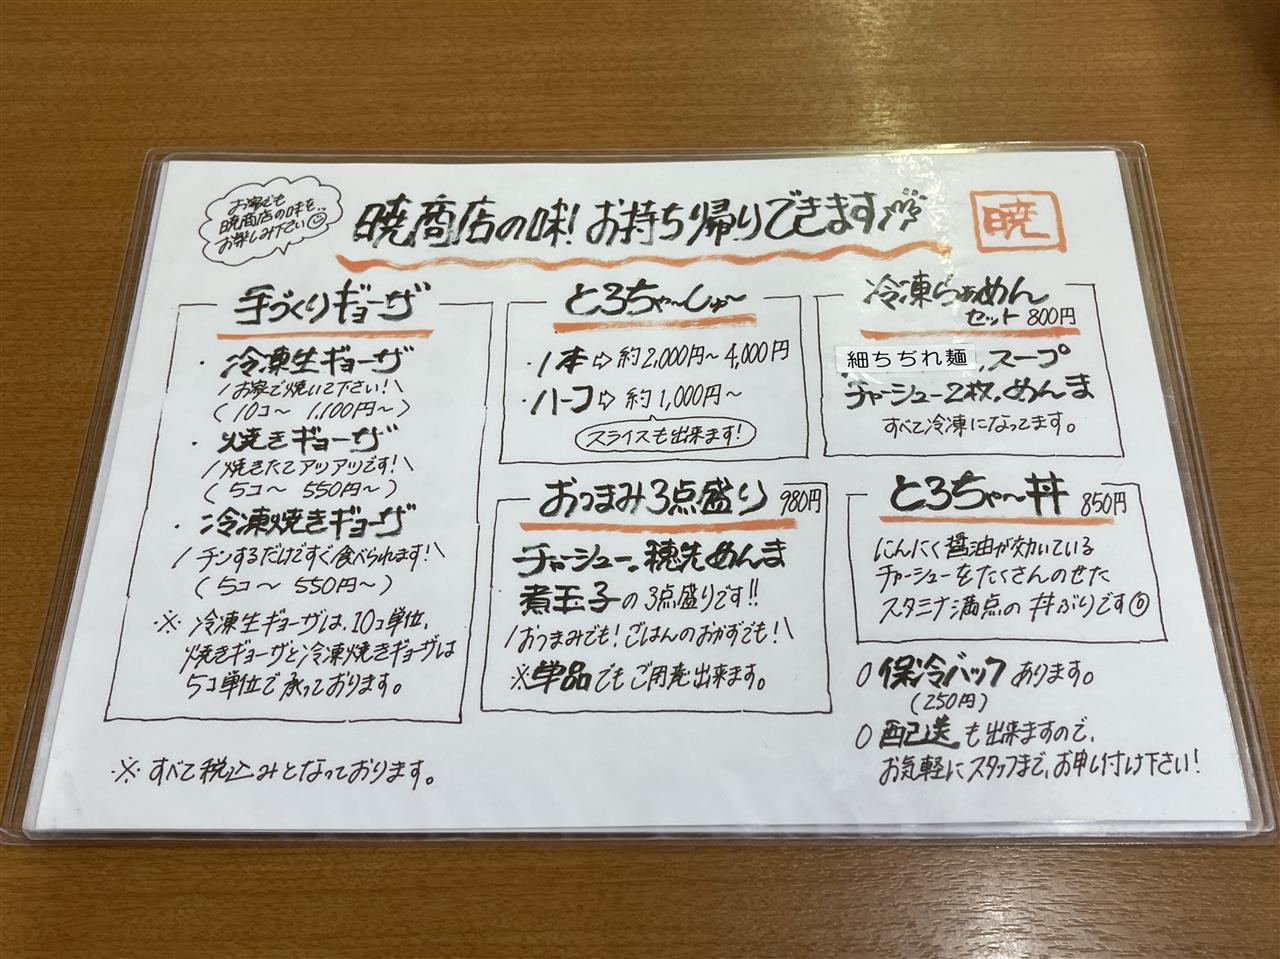 お家でも
暁商店の味を、
お楽しみ下さい
暁商店の味!お持ち帰りできます
暁
手づくりギョーザ
・冷凍生ギョーザ
\お家で焼いて下さい!/
(10コ〜 1,100円〜)
・焼きギョーザ
\焼きたてアツアツです!/
(5コ〜 550円〜)
・冷凍焼きギョーザ
\チンするだけですぐ食べられます!/
(5コ〜 550円〜)
※冷凍生ギョーザは、10コ単位、
焼きギョーザと冷凍焼きギョーザは
5コ単位で承っております。
とろちゃ〜しゅ〜
・1本⇨約2,000円〜4,000円
・ハーフ⇨約1,000円〜
スライスも出来ます!
おつまみ3点盛り 980円
チャーシュー。穂先めんま
煮玉子の3点盛りです!!
\おつまみでも!ごはんのおかずでも!/
※単品でもご用意出来ます。
冷凍らぁめん
セット 800円
細ちぢれ麺、スープ
チャーシュー2枚。めんま
すべて冷凍になってます。
とろちゃ〜丼 850円
にんにく醤油が効いている
チャーシューをたくさんのせた
スタミナ満点の丼ぶりです
○保冷バックあります。
(250円)
○配送も出来ますので、
お気軽にスタッフまで、お申し付け下さい!
※すべて税込みとなっております。